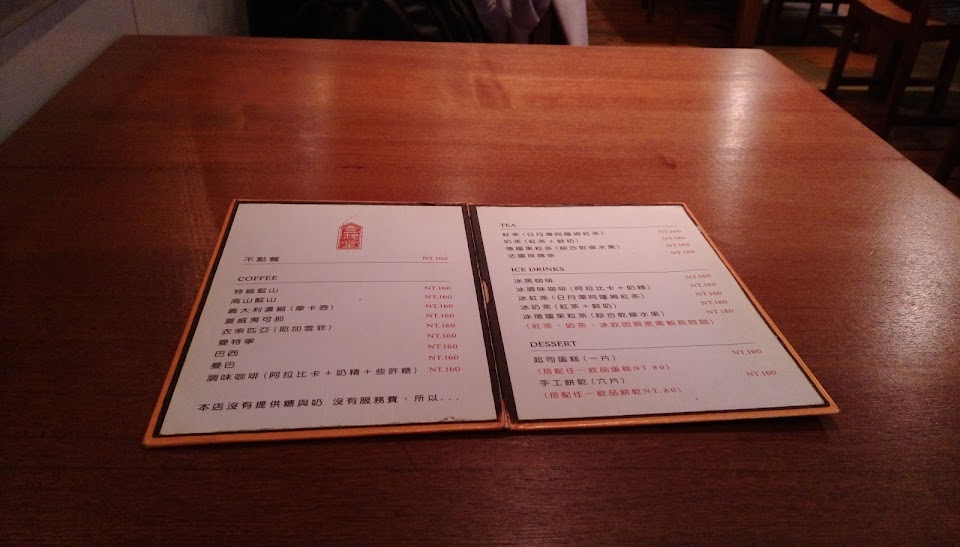 不點餐 NT.160
COFFEE
特級藍山 NT.160
高山藍山 NT.160
義大利濃縮(摩卡壺) NT.160
夏威夷可那 NT.160
衣索匹亞(耶加雪菲) NT.160
曼特寧 NT.160
巴西 NT.160
曼巴 NT.160
調味咖啡(阿拉比卡+奶精+些許糖) NT.160
本店沒有提供糖與奶 沒有服務費,所以...
TEA
紅茶(日月潭阿薩姆紅茶) NT.160
奶茶(紅茶+鮮奶) NT.160
德國果粒茶(綜合乾燥水果) NT.160
法國玫瑰茶 NT.160
ICE DRINKS
冰黑咖啡 NT.160
冰調味咖啡(阿拉比卡+奶精) NT.160
冰紅茶(日月潭阿薩姆紅茶) NT.160
冰奶茶(紅茶+鮮奶) NT.160
冰德國果粒茶(綜合乾燥水果) NT.180
(紅茶、奶茶、冰飲因現煮需較長時間)
DESSERT
起司蛋糕(一片) NT.160
(搭配任一飲品蛋糕NT.80)
手工餅乾(六片) NT.160
(搭配任一飲品餅乾NT.80)